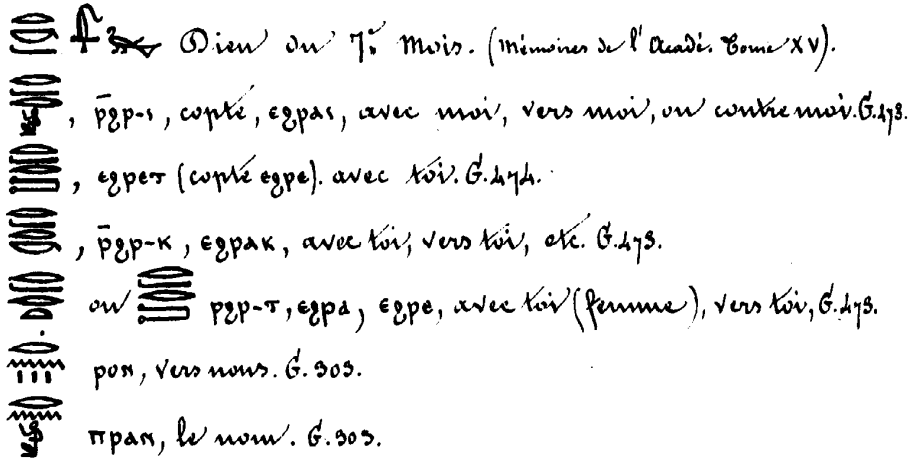 Dieu du 7e mois. (Mémoires de l'Acadé. Tome XV).
, ⲣ̄ϩⲣ-ⲓ, copte, ⲉϩⲣⲁⲓ, avec moi, vers moi, ou contre moi. G. 473.
, ⲉϩⲣⲉⲧ (copte ⲉϩⲣⲉ). avec toi. G. 474.
, ⲣ̄ϩⲣ-ⲕ, ⲉϩⲣⲁⲕ, avec toi, vers toi, etc. G. 473.
ou ⲣϩⲣ-ⲧ, ⲉϩⲣⲁ, ⲉϩⲣⲉ, avec toi (femme), vers toi, G. 473.
ⲣⲟⲛ, vers nous. G. 303.
ⲡⲣⲁⲛ, le nom. G. 303.